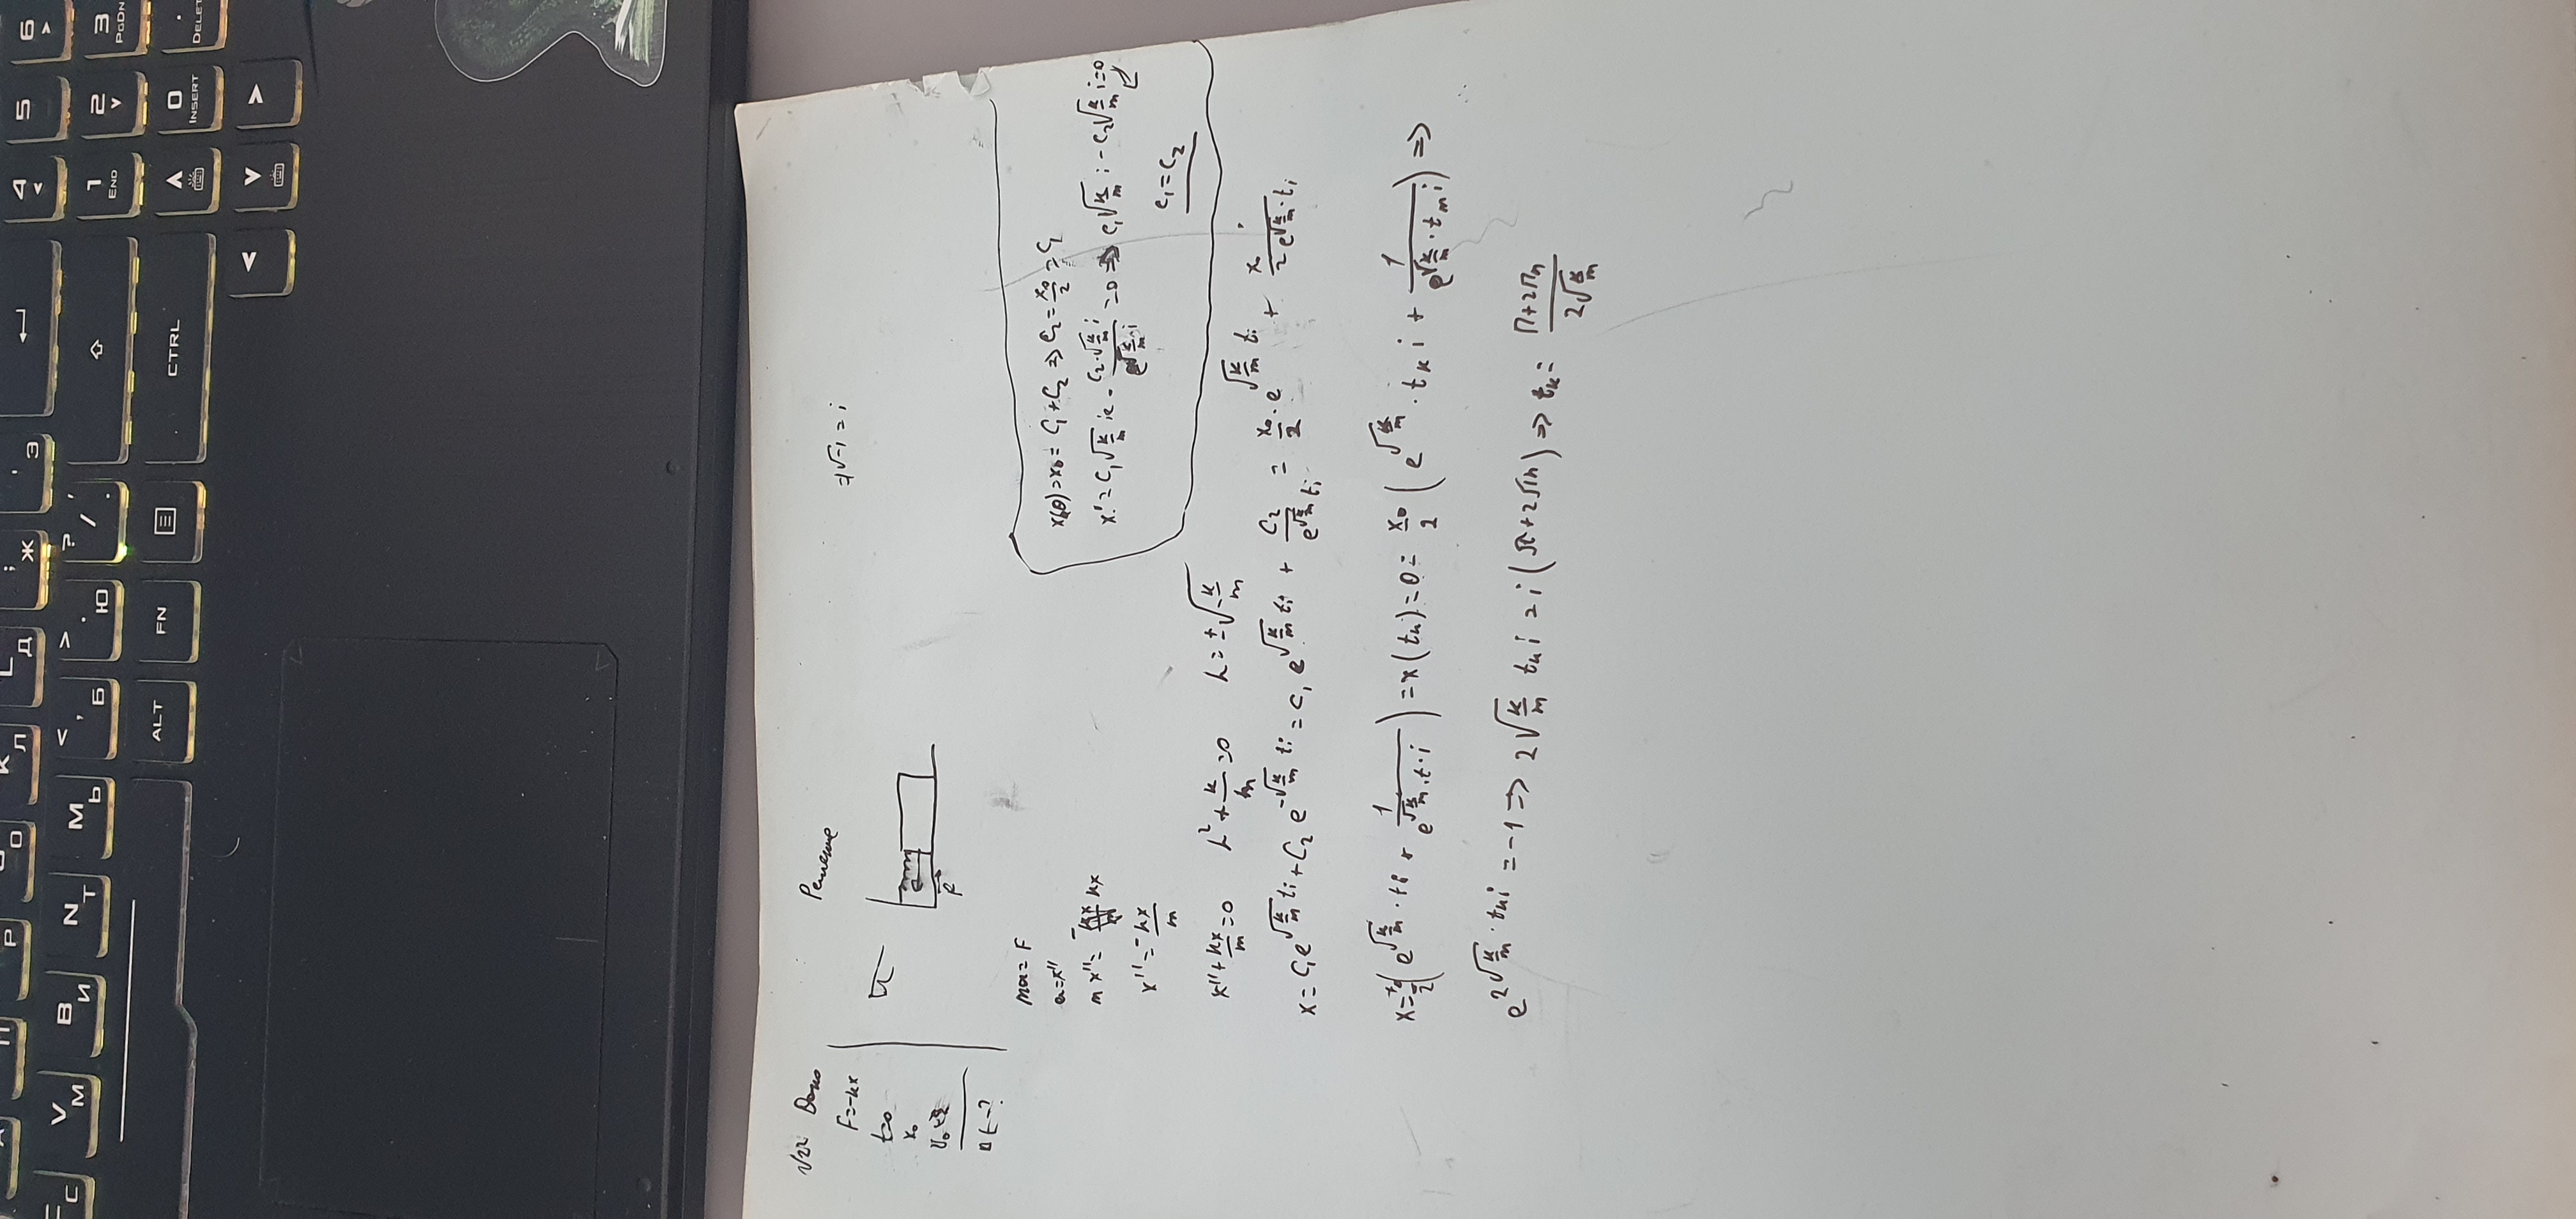 P О К Л L Д ; Ж ' Э 4 < 5 6 >
С V М В И N Т М Ь < , Б > . Ю ? / , . 1 END 2 3 PGDN
ALT FN CTRL 0 INSERT . DELET
√22 Дано
Решение
=> √-1 = i
F=-kx
t=0
x₀
Δt-?
F
ma = F
a=x''
m x'' = kx
x'' = -kx/m
x(0)=x₀ = C₁+C₂ => C₂ = x₀/2 = C₁
=0 => C₁√(k/m) i - C₂√(k/m) i=0
C₁=C₂
x''+kx/m=0 λ²+k/m=0 λ=±√(-k/m)
x = C₁e^(√(k/m) ti) + C₂ e^(-√(k/m) ti) = C₁ e^(√(k/m) ti) + C₂/e^(√(k/m) ti) = x₀/2 · e^(√(k/m) ti) + x₀/(2e^(√(k/m)·ti))
x = x₀/2 (e^(√(k/m)·ti) + 1/e^(√(k/m)·t·i)) = x(tк)=0= x₀/2 (e^(√(k/m)·tк i) + 1/e^(√(k/m)·tк i)) =>
e^(2√(k/m)·tкi) = -1 => 2√(k/m) tк i = i(π+2πn) => tк = (π+2πn)/(2√(k/m))